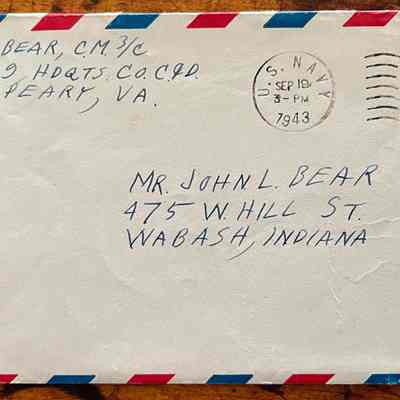 BEAR, C.M. 3/C
9 HDQTS. CO. C&D.
PEARY, VA.
U.S. NAVY
SEP 19
3-PM
1943
MR. JOHN L. BEAR
475 W. HILL ST.
WABASH, INDIANA